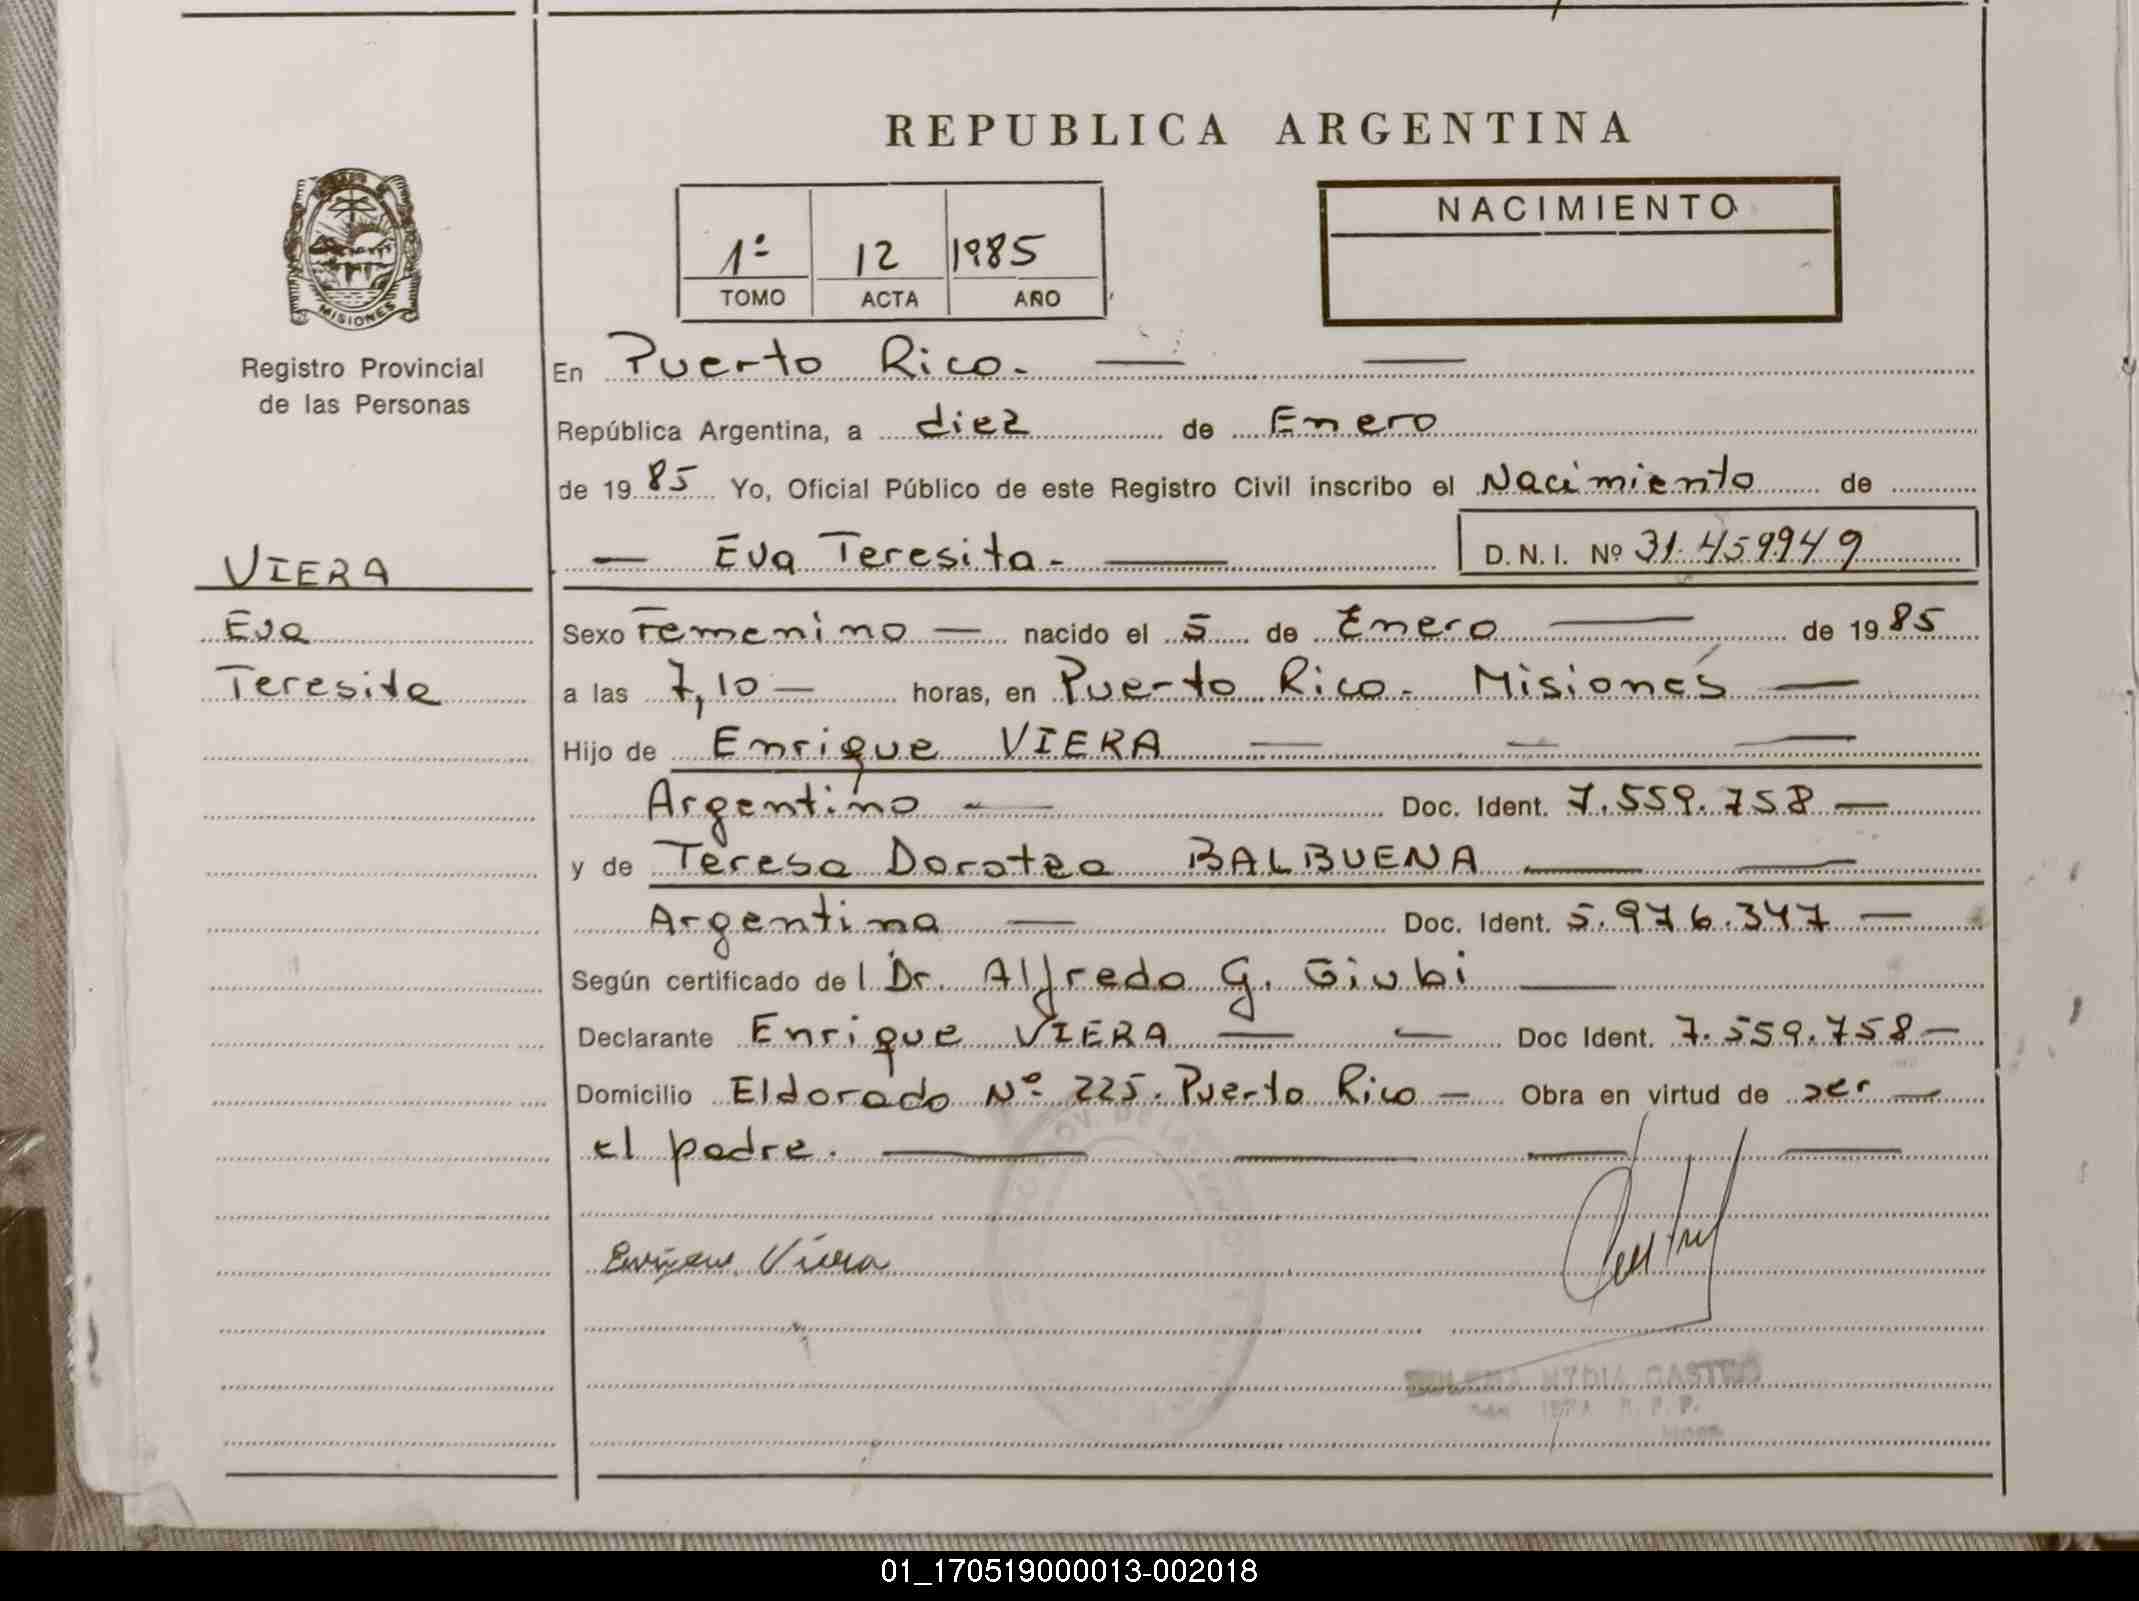 REPUBLICA ARGENTINA
NACIMIENTO
1º 12 1985
TOMO ACTA AÑO
MISIONES
Registro Provincial
de las Personas
En Puerto Rico.
República Argentina, a diez de Enero
de 1985 Yo, Oficial Público de este Registro Civil inscribo el Nacimiento de
VIERA
Eva Teresita - D. N. I. Nº 31.459949
Eva
Sexo Femenino nacido el 5 de Enero de 1985
Teresita
a las 7,10 horas, en Puerto Rico. Misiones
Hijo de Enrique VIERA
Argentino Doc. Ident. 7.559.758
y de Teresa Dorotea BALBUENA
Argentina Doc. Ident. 5.976.347
Según certificado de l Dr. Alfredo G. Giubi
Declarante Enrique VIERA Doc Ident. 7.559.758
Domicilio Eldorado Nº 225. Puerto Rico Obra en virtud de ser
el padre.
Enrique Viera
CASTRO
01_170519000013-002018